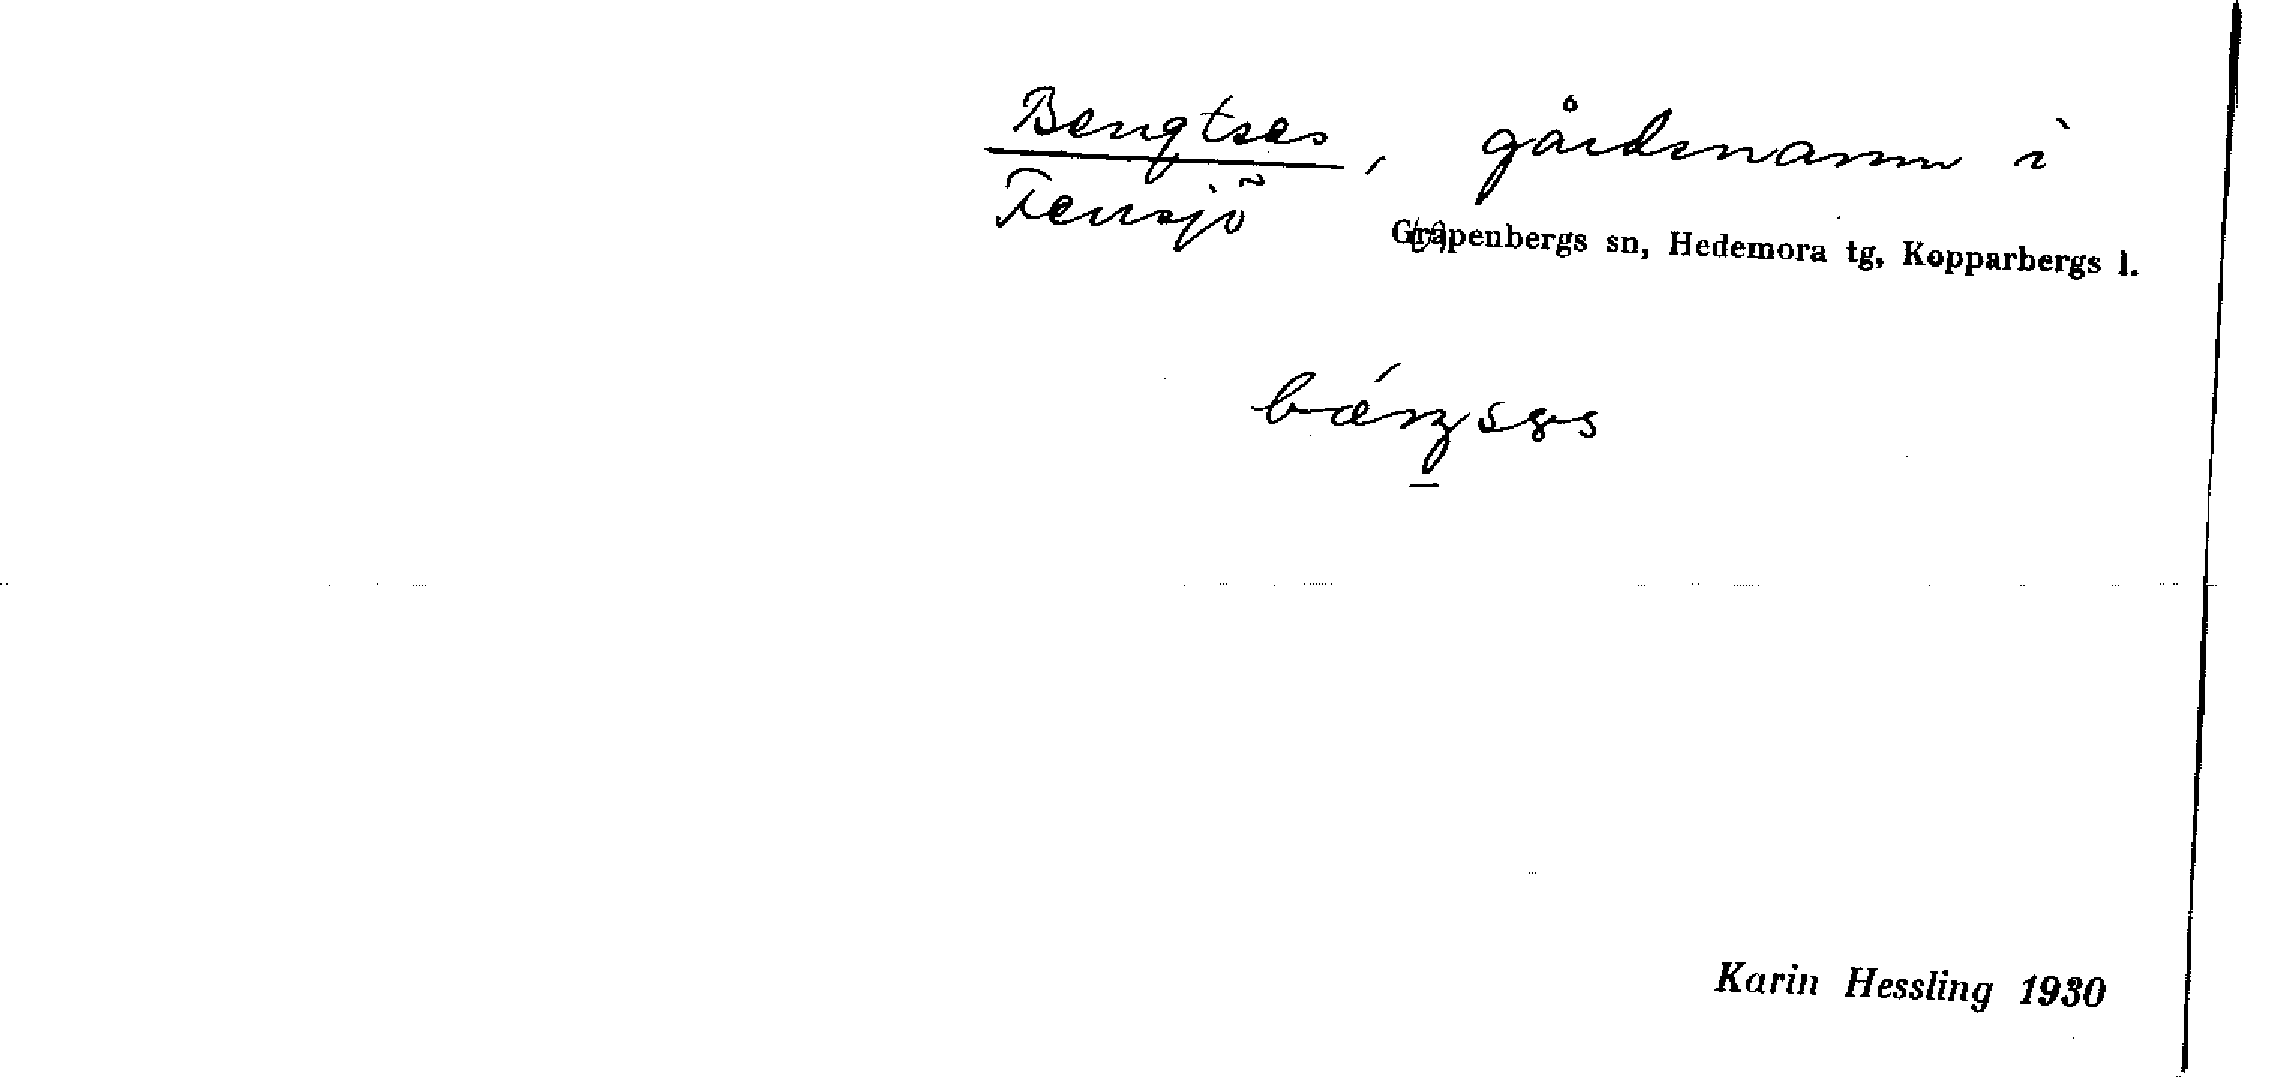 Bengtses, gårdsnamn i
Fensjö Grapenbergs sn, Hedemora tg, Kopparbergs l.
Karin Hessling 1930